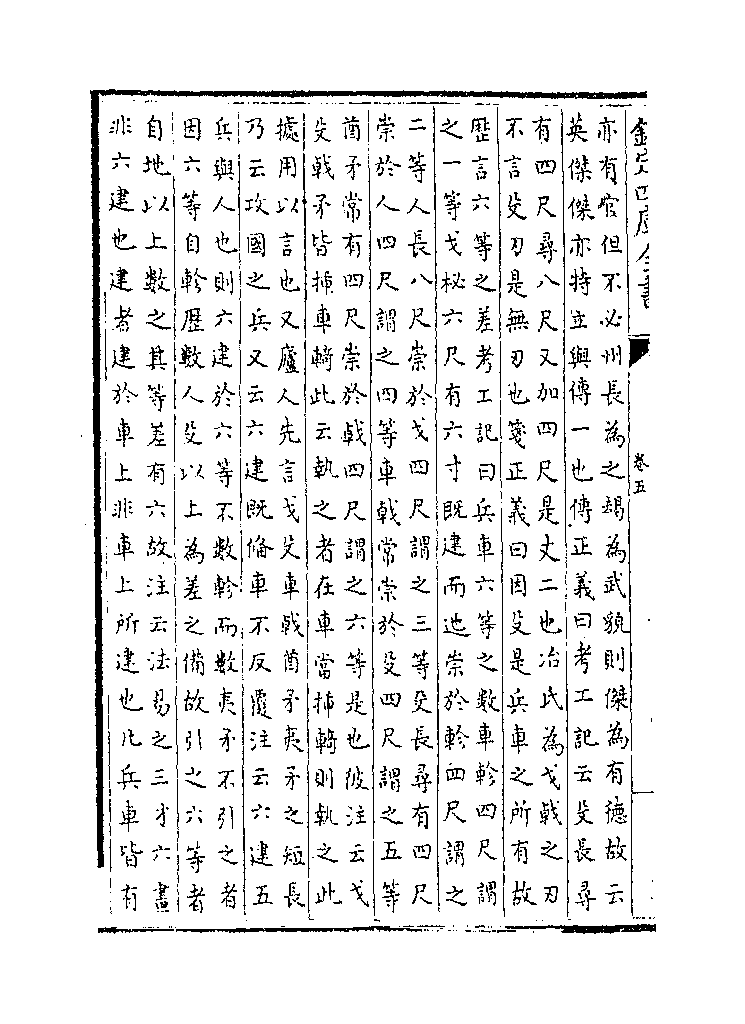 欽定四庫全書
卷五
亦有官但不必州長為之朅為武貌則傑為有德故云
英傑傑亦特立與傳一也傳正義曰考工記云殳長尋
有四尺尋八尺又加四尺是丈二也冶氏為戈戟之刃
不言殳刃是無刃也箋正義曰因殳是兵車之所有故
歷言六等之差考工記曰兵車六等之數車軫四尺謂
之一等戈柲六尺有六寸既建而迆崇於軫四尺謂之
二等人長八尺崇於戈四尺謂之三等殳長尋有四尺
崇於人四尺謂之四等車戟常崇於殳四尺謂之五等
酋矛常有四尺崇於戟四尺謂之六等是也彼注云戈
殳戟矛皆揷車輢此云執之者在車當揷輢則執之此
據用以言也又廬人先言戈殳車戟酋矛夷矛之短長
乃云攻國之兵又云六建既備車不反覆注云六建五
兵與人也則六建於六等不數軫而數夷矛不引之者
因六等自軫歷數人殳以上為差之備故引之六等者
自地以上數之其等差有六故注云法易之三才六畫
非六建也建者建於車上非車上所建也凡兵車皆有